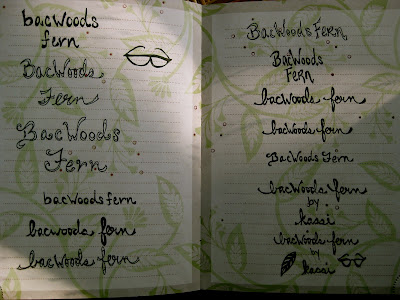 bacwoods
fern
BacWoods
Fern
BacWoods
Fern
bacwoods fern
bacwoods fern
bacwoods fern
BacWoods Fern
BacWoods
Fern
bacwoods fern
bacwoods fern
BacWoods Fern
bacwoods fern
by
kassi
bacwoods fern
by
kassi